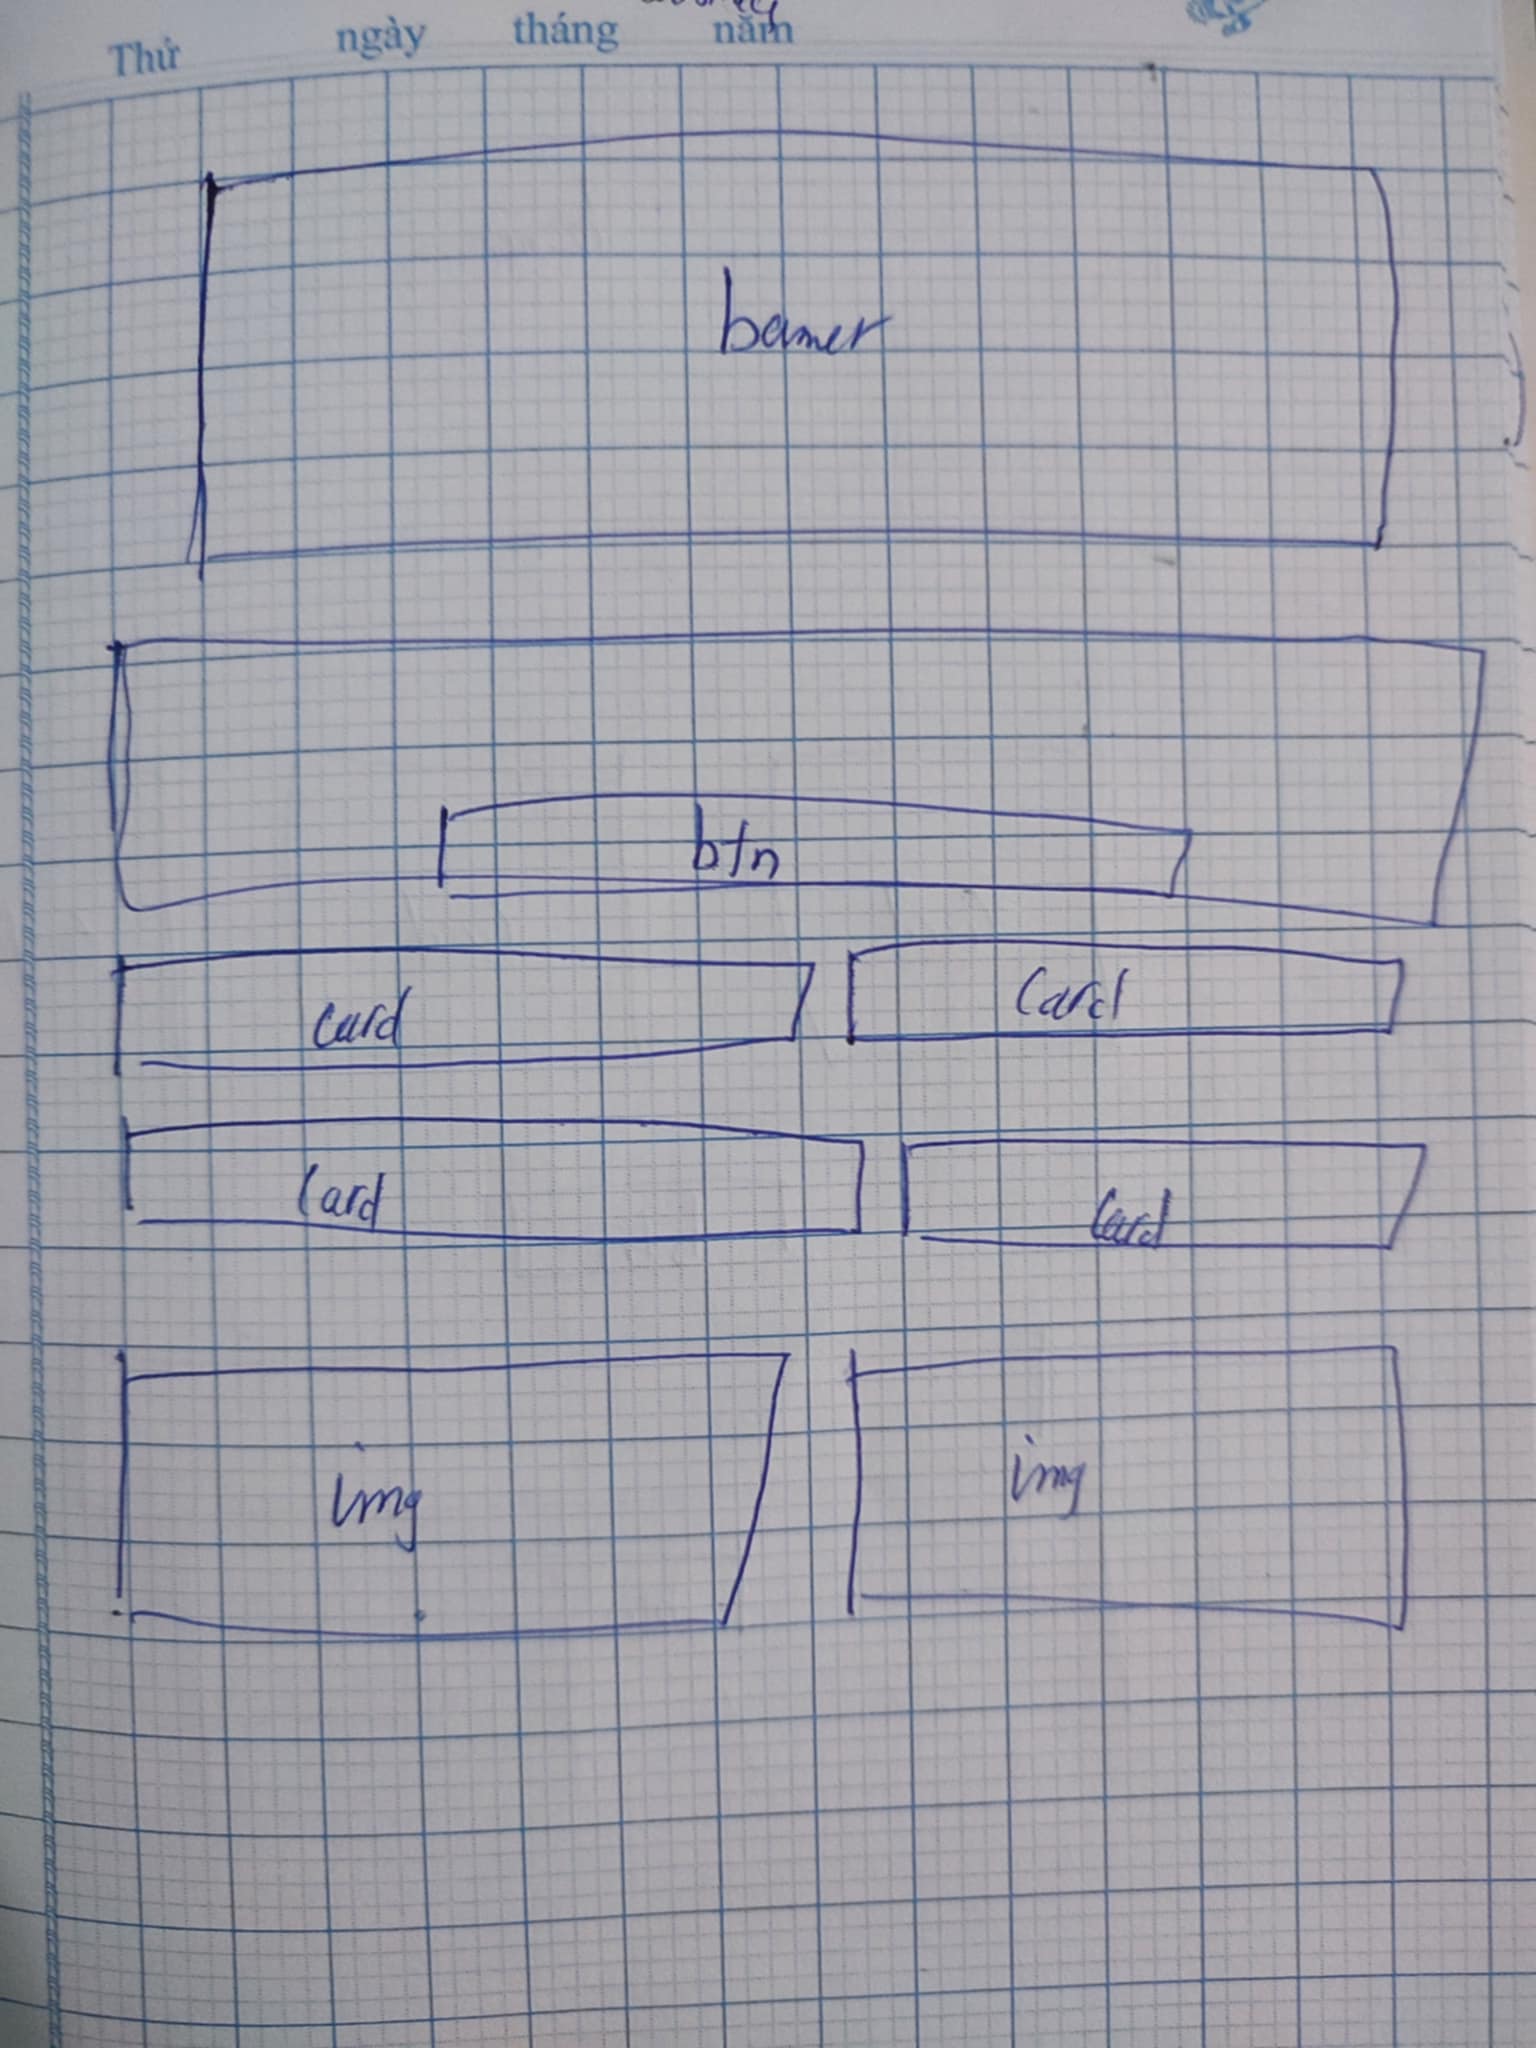 Thứ ngày tháng năm
banner
btn
card Card
Card Card
img img